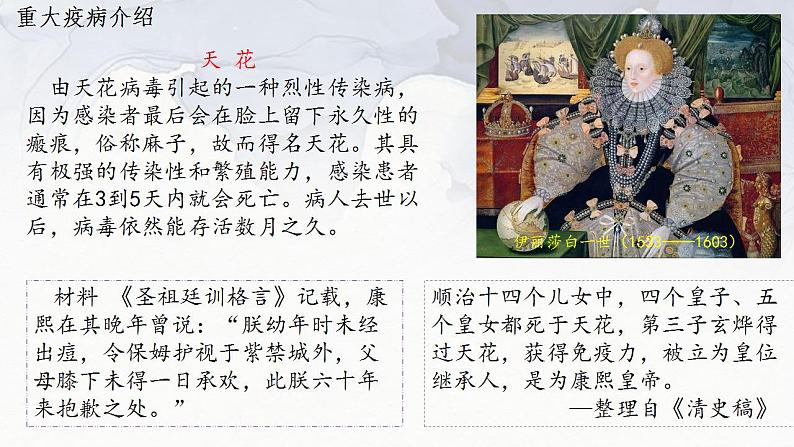 重大疫病介绍
天 花
由天花病毒引起的一种烈性传染病，
因为感染者最后会在脸上留下永久性的
瘢痕，俗称麻子，故而得名天花。其具
有极强的传染性和繁殖能力，感染患者
通常在3到5天内就会死亡。病人去世以
后，病毒依然能存活数月之久。
伊丽莎白一世（1533——1603）
材料 《圣祖廷训格言》记载，康
熙在其晚年曾说：“朕幼年时未经
出痘，令保姆护视于紫禁城外，父
母膝下未得一日承欢，此朕六十年
来抱歉之处。”
顺治十四个儿女中，四个皇子、五
个皇女都死于天花，第三子玄烨得
过天花，获得免疫力，被立为皇位
继承人，是为康熙皇帝。
—整理自《清史稿》